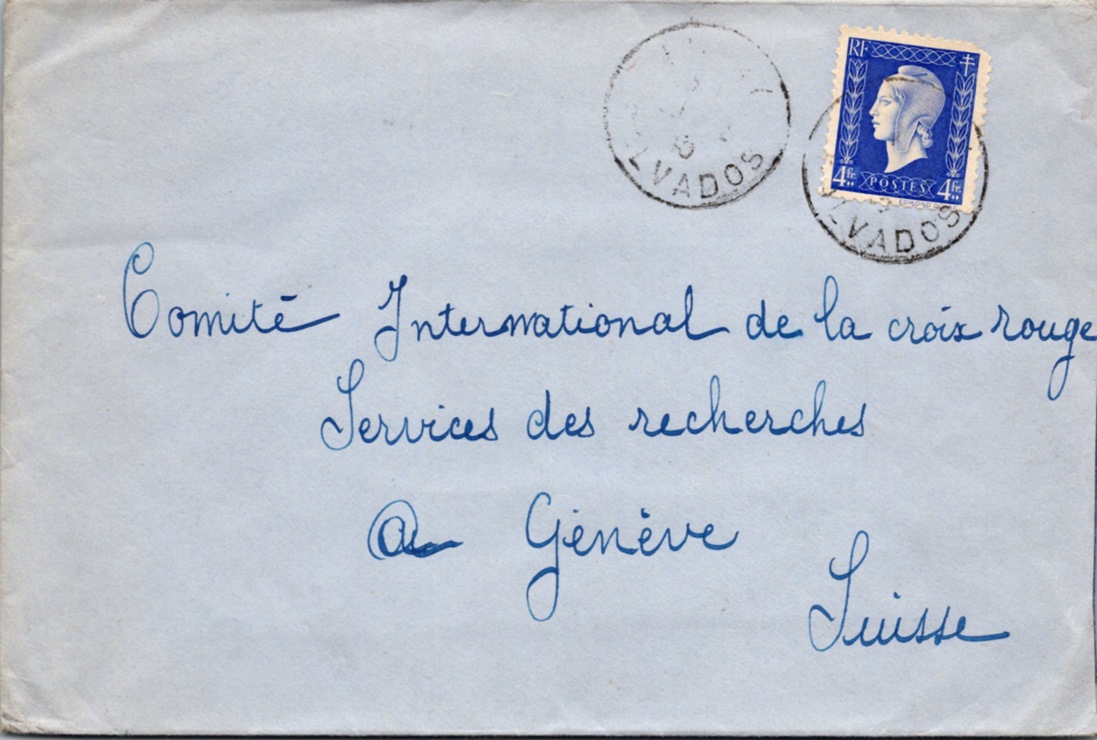 RF
4fr. POSTES 4fr.
LVADOS
LVADOS
Comité International de la croix rouge
Services des recherches
a Genève
Suisse